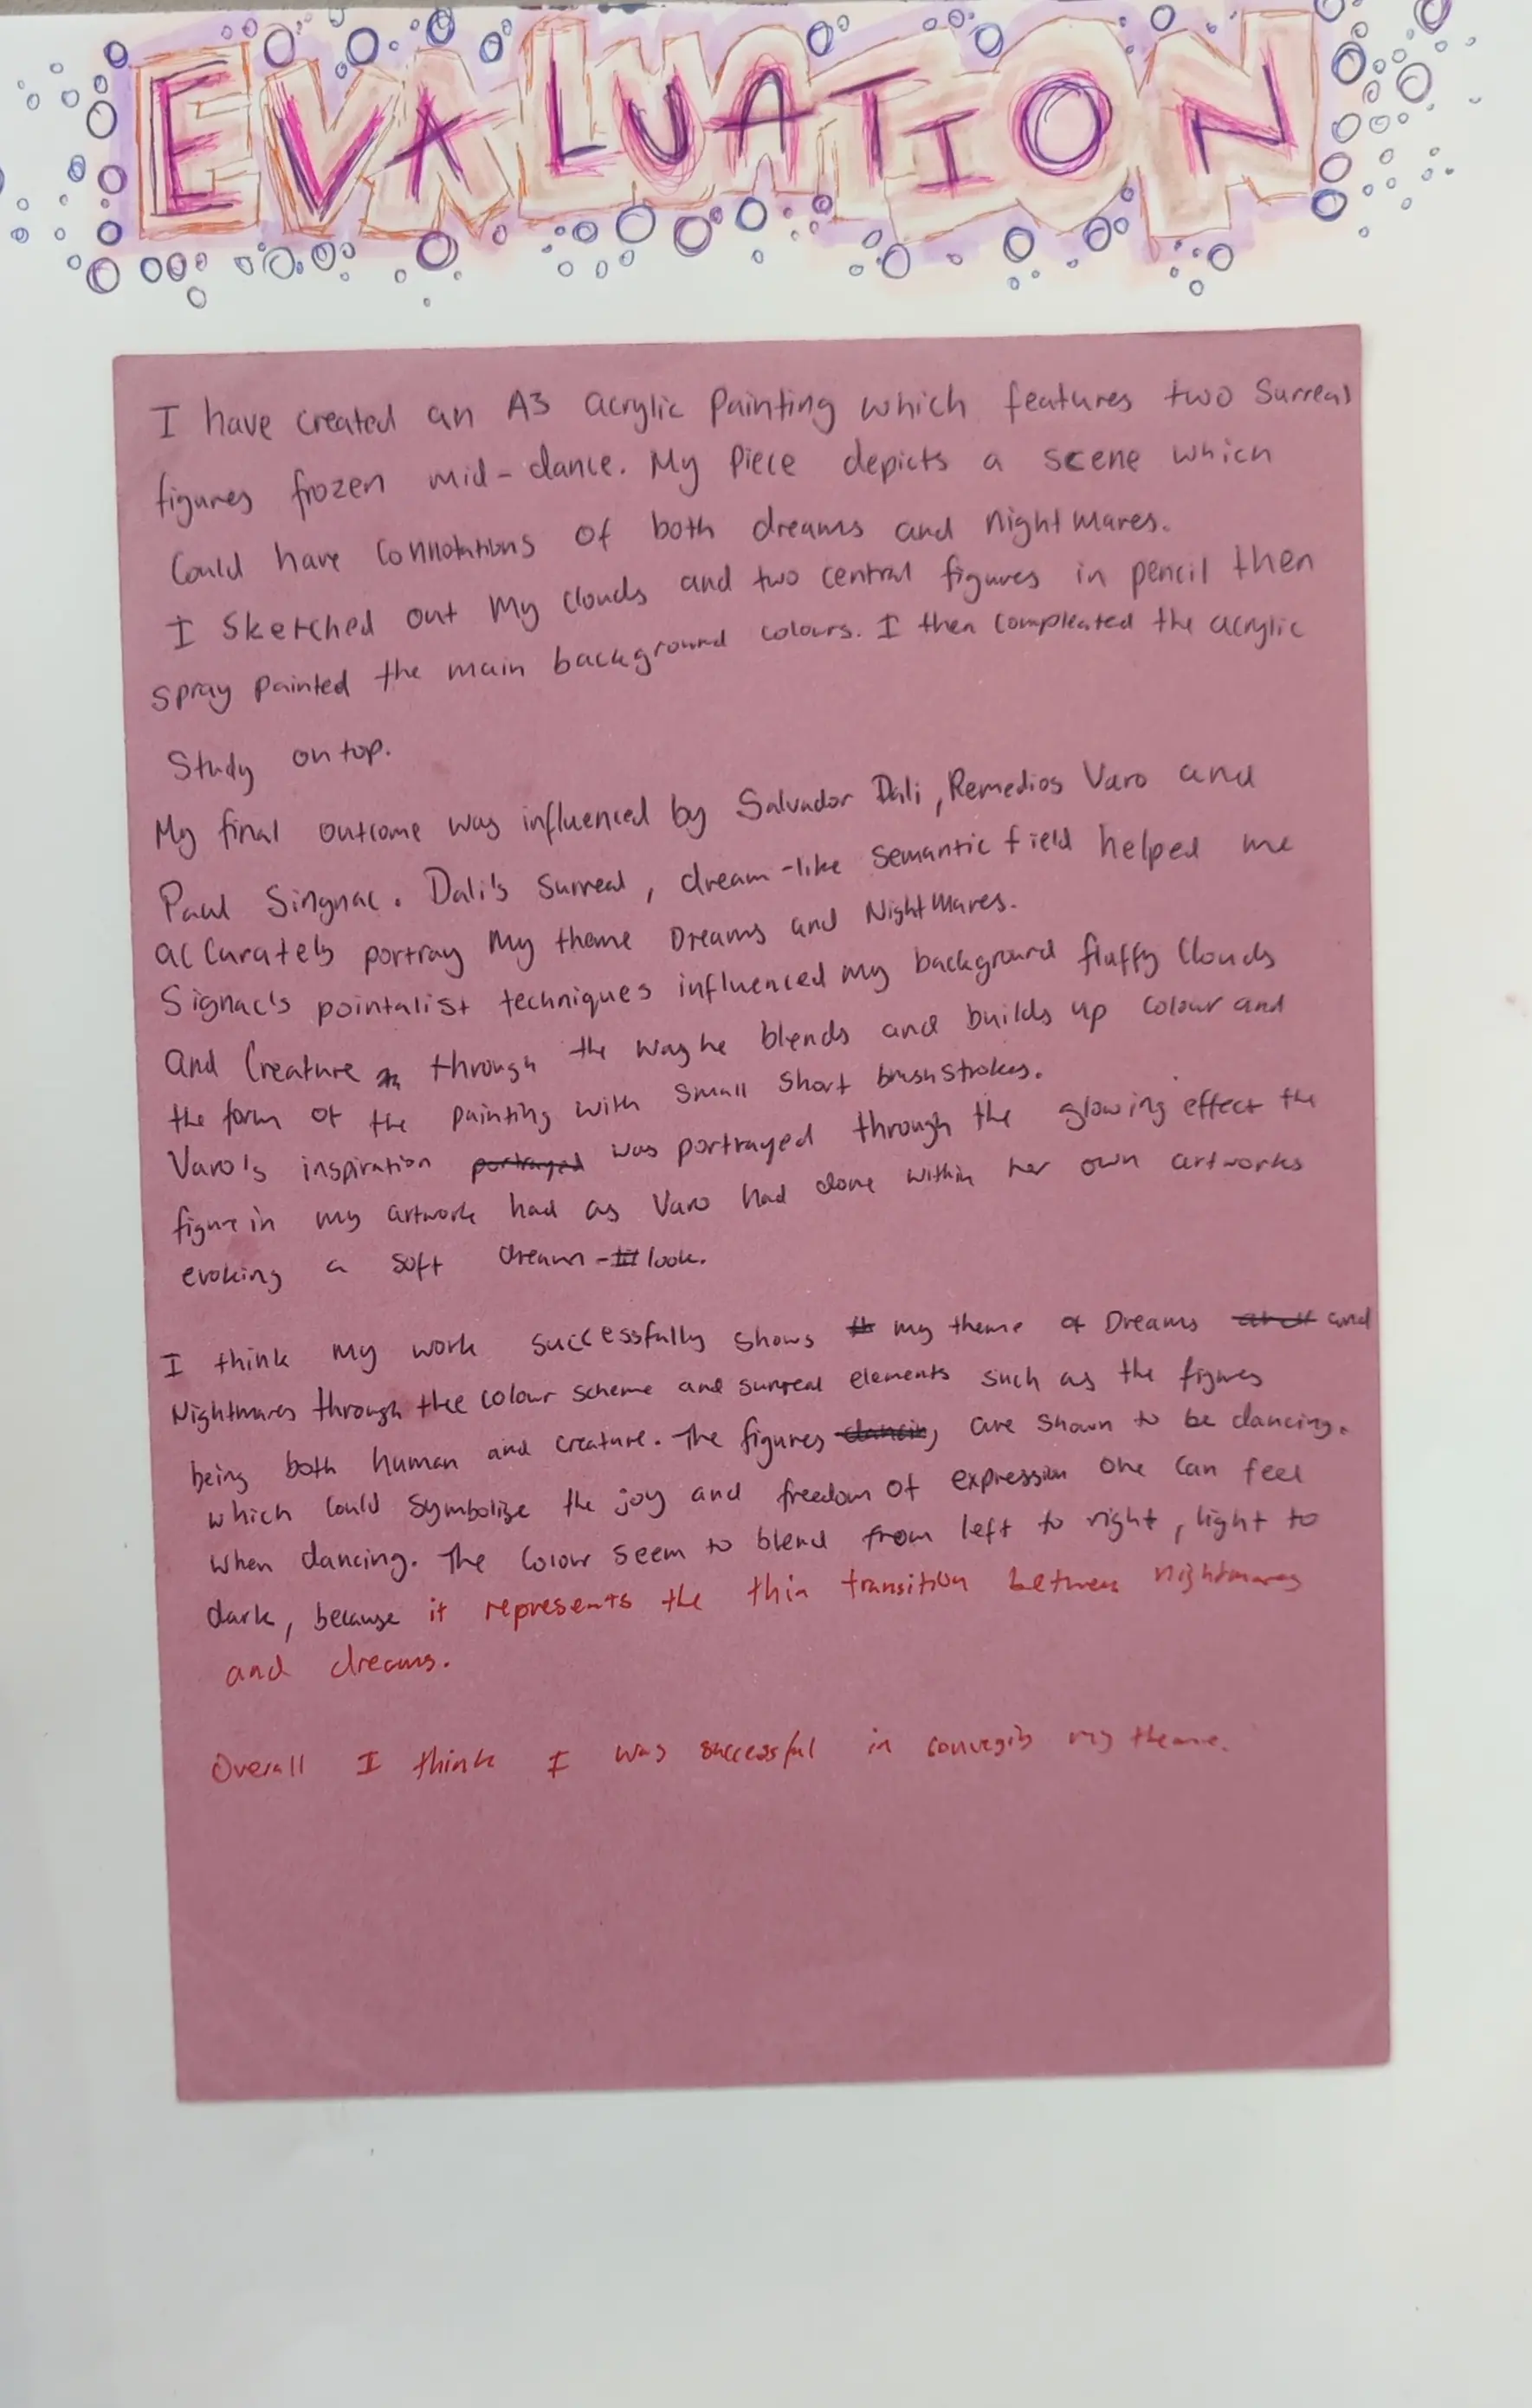 EVALUATION
I have created an A3 acrylic Painting which features two Surreal
figures frozen mid-dance. My Piece depicts a scene which
Could have Connotations of both dreams and nightmares.
I Sketched out My clouds and two central figures in pencil then
spray Painted the main background colours. I then compleated the acrylic
Study on top.
My final outcome was influenced by Salvador Dali, Remedios Varo and
Paul Singnac. Dali's Surreal, dream-like semantic field helped me
accurately portray My theme Dreams and NightMares.
Signac's pointalist techniques influenced my background fluffy Clouds
and Creature through the way he blends and builds up colour and
the form of the painting with small short brushstrokes.
Varo's inspiration portrayed was portrayed through the glowing effect the
figure in my artwork had as Varo had done within her own artworks
evoking a soft dream- look.
I think my work successfully shows my theme of Dreams and
Nightmares through the colour scheme and surreal elements such as the figures
being both human and creature. The figures are shown to be dancing.
which could symbolize the joy and freedom of expression one can feel
when dancing. The Colour seem to blend from left to right, light to
dark, because it represents the thin transition between nightmares
and dreams.
Overall I think I was successful in my theme.